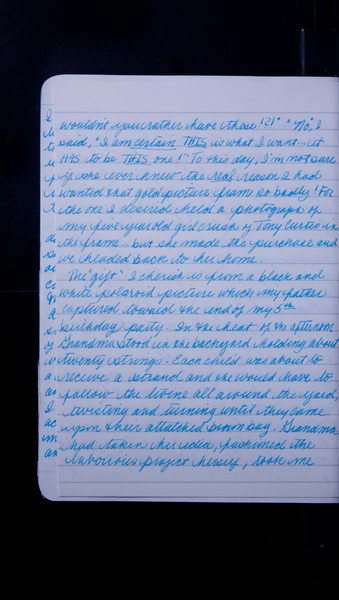 wouldn't you rather have these?" "No," I
said, "I am certain THIS is what I want... it
HAS to be THIS one!" To this day, I'm not sure
if she ever knew the real reason I had
wanted that gold picture frame so badly! For
the one I desired held a photograph of
my five year old girl crush of Tony Curtis in
the frame... but she made the purchase and
we headed back to her home.
The "gift" I cherish is from a black and
white polaroid picture which my father
captured toward the end of my 5th
birthday party. In the heat of the afternoon
Grandma stood in the backyard holding about
twenty strings. Each child was about to
receive a strand and she would have to
follow the twine all around the yard,
twisting and turning until they came
upon their attatched bag. Grandma
had taken her idea, fashioned the
laborious project herself, took me